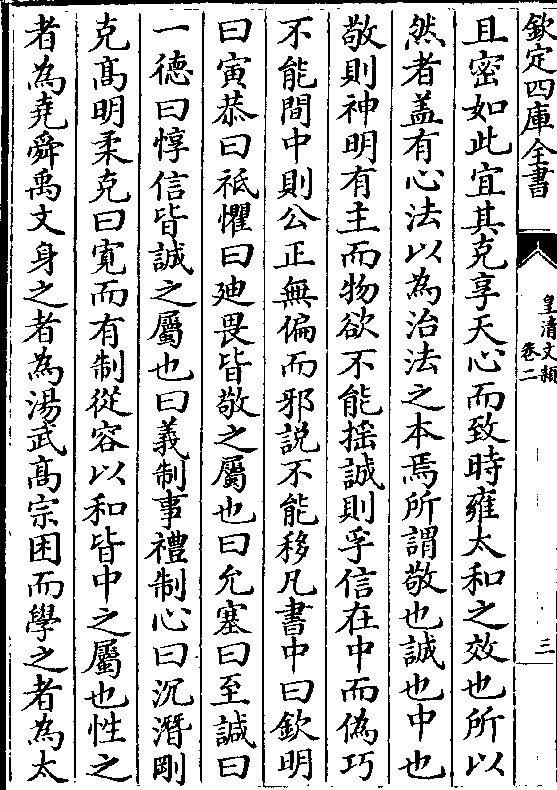 欽定四庫全書
皇清文穎
卷二
三
且密如此宜其克享天心而致時雍太和之效也所以
然者蓋有心法以為治法之本焉所謂敬也誠也中也
敬則神明有主而物欲不能揺誠則孚信在中而偽巧
不能間中則公正無偏而邪說不能移凡書中曰欽明
曰寅恭曰祗懼曰廸畏皆敬之屬也曰允塞曰至諴曰
一德曰惇信皆誠之屬也曰義制事禮制心曰沉潛剛
克髙明柔克曰寛而有制從容以和皆中之屬也性之
者為堯舜禹文身之者為湯武髙宗困而學之者為太